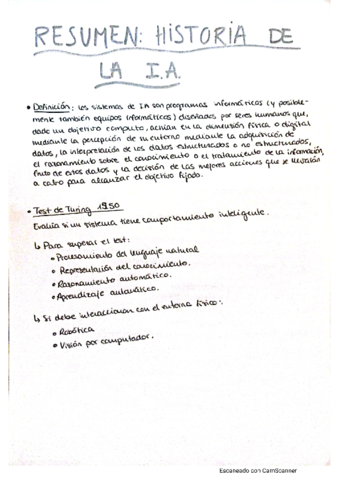 RESUMEN: HISTORIA DE
LA I.A.
• Definición: los sistemas de IA son programas informáticos (y posible-
mente también equipos informáticos) diseñados por seres humanos que,
dado un objetivo complejo, actúan en la dimensión física o digital
mediante la percepción de su entorno mediante la adquisición de
datos, la interpretación de los datos estructurados o no estructurados,
el razonamiento sobre el conocimiento o el tratamiento de la información,
fruto de estos datos y la decisión de las mejores acciones que se llevarán
a cabo para alcanzar el objetivo fijado.
• Test de Turing 1950
Evalúa si un sistema tiene comportamiento inteligente.
↳ Para superar el test:
• Procesamiento del lenguaje natural
• Representación del conocimiento.
• Razonamiento automático.
• Aprendizaje automático.
↳ Si debe interaccionar con el entorno físico:
• Robótica
• Visión por computador.
Escaneado con CamScanner